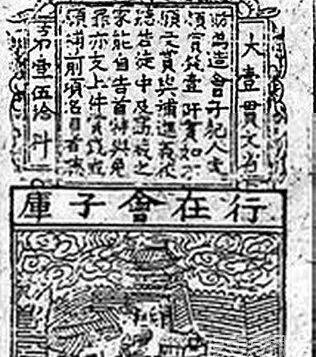 大壹貫文省
偽造會子犯人處
賞錢壹阡貫如不
願支賞與補進義校
若徒中及窩藏之
家能自告首特與免
罪亦支上件賞錢或
願補前項名目者聽
第壹伍拾料
行在會子庫